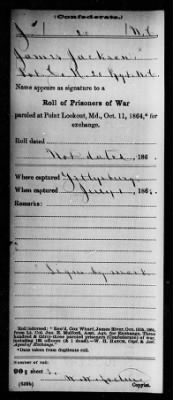 (Confederate.)
J 20 N.C.
James Jackson
Pvt. Co. K. 20 Regt. N.C.
Name appears as signature to a
Roll of Prisoners of War
paroled at Point Lookout, Md., Oct. 11, 1864,* for
exchange.
Roll dated
Not dated, 186 .
Where captured Gettysburg
When captured July 1, 186 .
Remarks:
Signs by mark
Roll indorsed: "Rec'd, Cox Wharf, James River, Oct. 15th, 1864,
from Lt. Col. Jno. E. Mulford, Asst. Agt. for Exchange, Three
hundred & thirty-three paroled prisoners (Confederates) of war,
including 186 officers (& 1 dead).—W. H. Hatch, Capt. & Asst.
Agent of Exchange."
*Date taken from duplicate roll.
Number of roll:
90; sheet 3
(639b) Copyist.